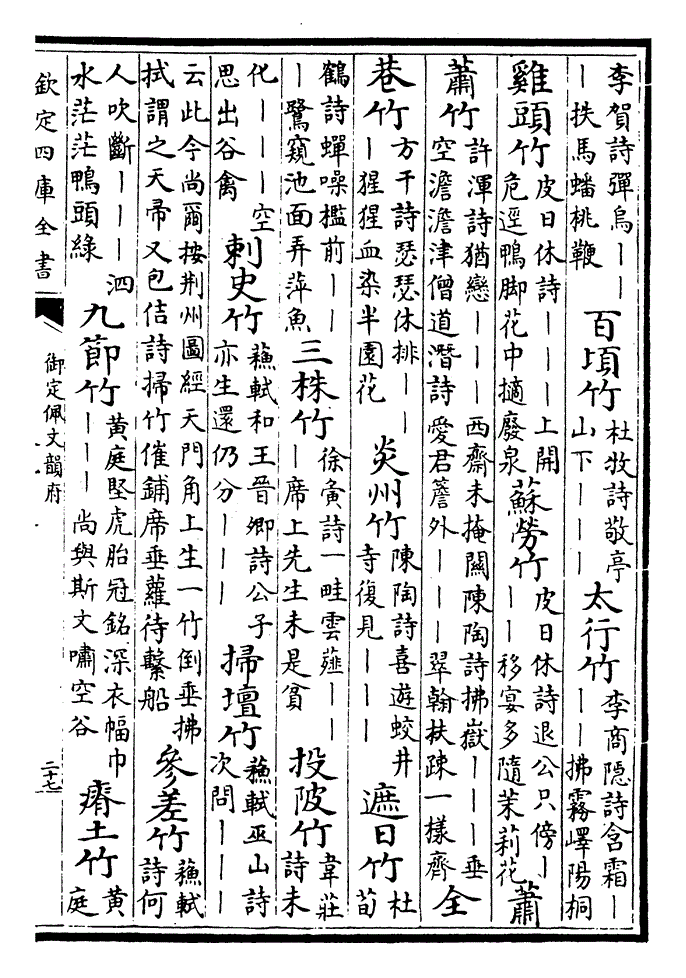 李賀詩彈烏丨丨
丨抶馬蟠桃鞭
百頃竹
杜牧詩敬亭
山下丨丨丨
太行竹
李商隱詩含霜丨
丨丨拂霧嶧陽桐
雞頭竹
皮日休詩丨丨丨上開
危逕鴨脚花中擿廢泉
蘇勞竹
皮日休詩退公只傍丨
丨丨移宴多隨茉莉花
蕭
蕭竹
許渾詩猶戀丨丨丨西齋未掩關陳陶詩拂嶽丨丨丨垂
空澹澹津僧道潛詩愛君簷外丨丨丨翠翰扶疎一樣齊
全
巷竹
方干詩瑟瑟休排丨丨
丨猩猩血染半園花
炎州竹
陳陶詩喜遊蛟井
寺復見丨丨丨
遮日竹
杜
荀
鶴詩蟬噪檻前丨丨
丨鷺窺池面弄萍魚
三株竹
徐夤詩一畦雲薤丨丨
丨席上先生未是貧
投陂竹
韋莊
詩未
化丨丨丨空
思出谷禽
刺史竹
蘓軾和王晉卿詩公子
亦生還仍分丨丨丨
掃壇竹
蘓軾巫山詩
次問丨丨丨
云此今尚爾按荆州圖經天門角上生一竹倒垂拂
拭謂之天帚又包佶詩掃竹催鋪席垂蘿待繫船
參差竹
蘓軾
詩何
人吹斷丨丨丨泗
水茫茫鴨頭綠
九節竹
黃庭堅虎胎冠銘深衣幅巾
丨丨丨尚與斯文嘯空谷
瘠土竹
黃
庭
欽定四庫全書
御定佩文韻府
二十七